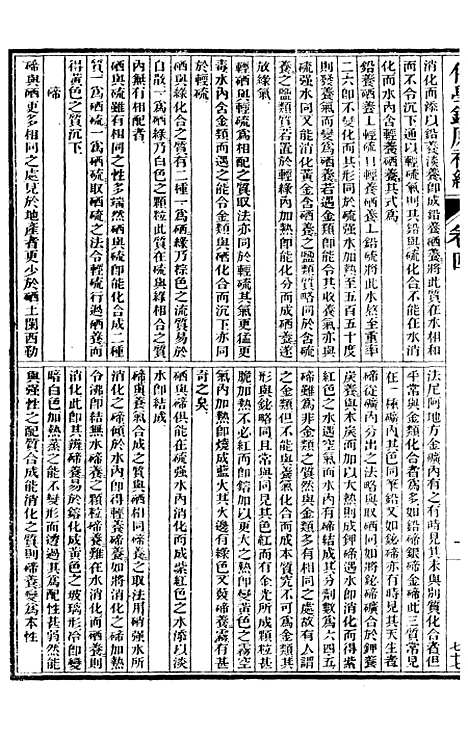 消化而添以鉛養淡養卽成鉛養硒養此質在水相和
而不令沉下通以輕硫氣則其鉛與硫化合而沉下其
化而水內含輕養硒養其式爲
鉛養硒養⊥輕硫＝輕養硒養⊥鉛硫將此水蒸至重率
二六卽不變性與硫强水同加熱至五百五十度
則變爲硒養與養氣遇金類卽能令其收養氣亦與
硫强水同又能消化黃金含硒養之鹽類質略同於含硫
養之鹽類質若置於輕綠內加熱卽變爲硒養之鹽類而
放綠氣
硒與輕化合之質取法亦同於硫與輕之質比輕硫更臭更
毒水內含金類而遇之能合金類與硒化合而沉下亦同
於輕硫
硒與綠化合之質有二種一爲硒綠乃棕色之流質易於
自散一爲硒綠乃白色之顆粒此質在硫與綠相合之
內無有相配者
硒與硫雖有相同之性多端然硒與硫卽能化合成二種
質一爲硒硫一爲硒硫取硒硫之法令輕硫行過硒養而
得黃色之質沉下
碲
碲與硒更多相同之處見於地產者更少於硒土閔西勒
法尼阿地方金礦內有之有時見其未與別質化合者但
平常與金類化合者爲多如碲銀碲金碲此三質常見
在一種礦內其色同筆鉛又如鉍碲亦有時見其天生者
碲從礦內分出之法略與取硒同如將鉍碲礦合於鉀養
炭養與木炭而加以大熱則成鉀碲遇水消化而得紫
紅色之水遇空氣而水內有碲結成其分劑數爲六四五
碲雖爲非金類之質然與金類多有相同之處故有人謂
之金類但不能與養氣化合而成本質究不可爲金類其
形與鉍略同與見其色紅而有金光所成顆粒
脆加熱不必紅而卽鎔更加以大熱卽變黃色之霧若空
氣內加熱卽燒成藍火其火邊有綠色又發碲養霧有甚
奇之臭
硒與碲俱能在硫强水內消化而成紫紅色之水添以淡
水卽結成
碲與養氣合成之質與硒相同碲養之取法用硝强水所
消化之碲傾於水內卽得輕養碲養如將消化之碲加熱
令沸卽結無水碲養之顆粒碲養難在水消化而硒養則
消化此卽其辨碲養易於鎔成黃色之玻璃形冷卽變
暗白色加熱蒸之能不變形而透過其爲配質也甚弱然能
與强性之配質合成能消化之質則碲養變爲本性